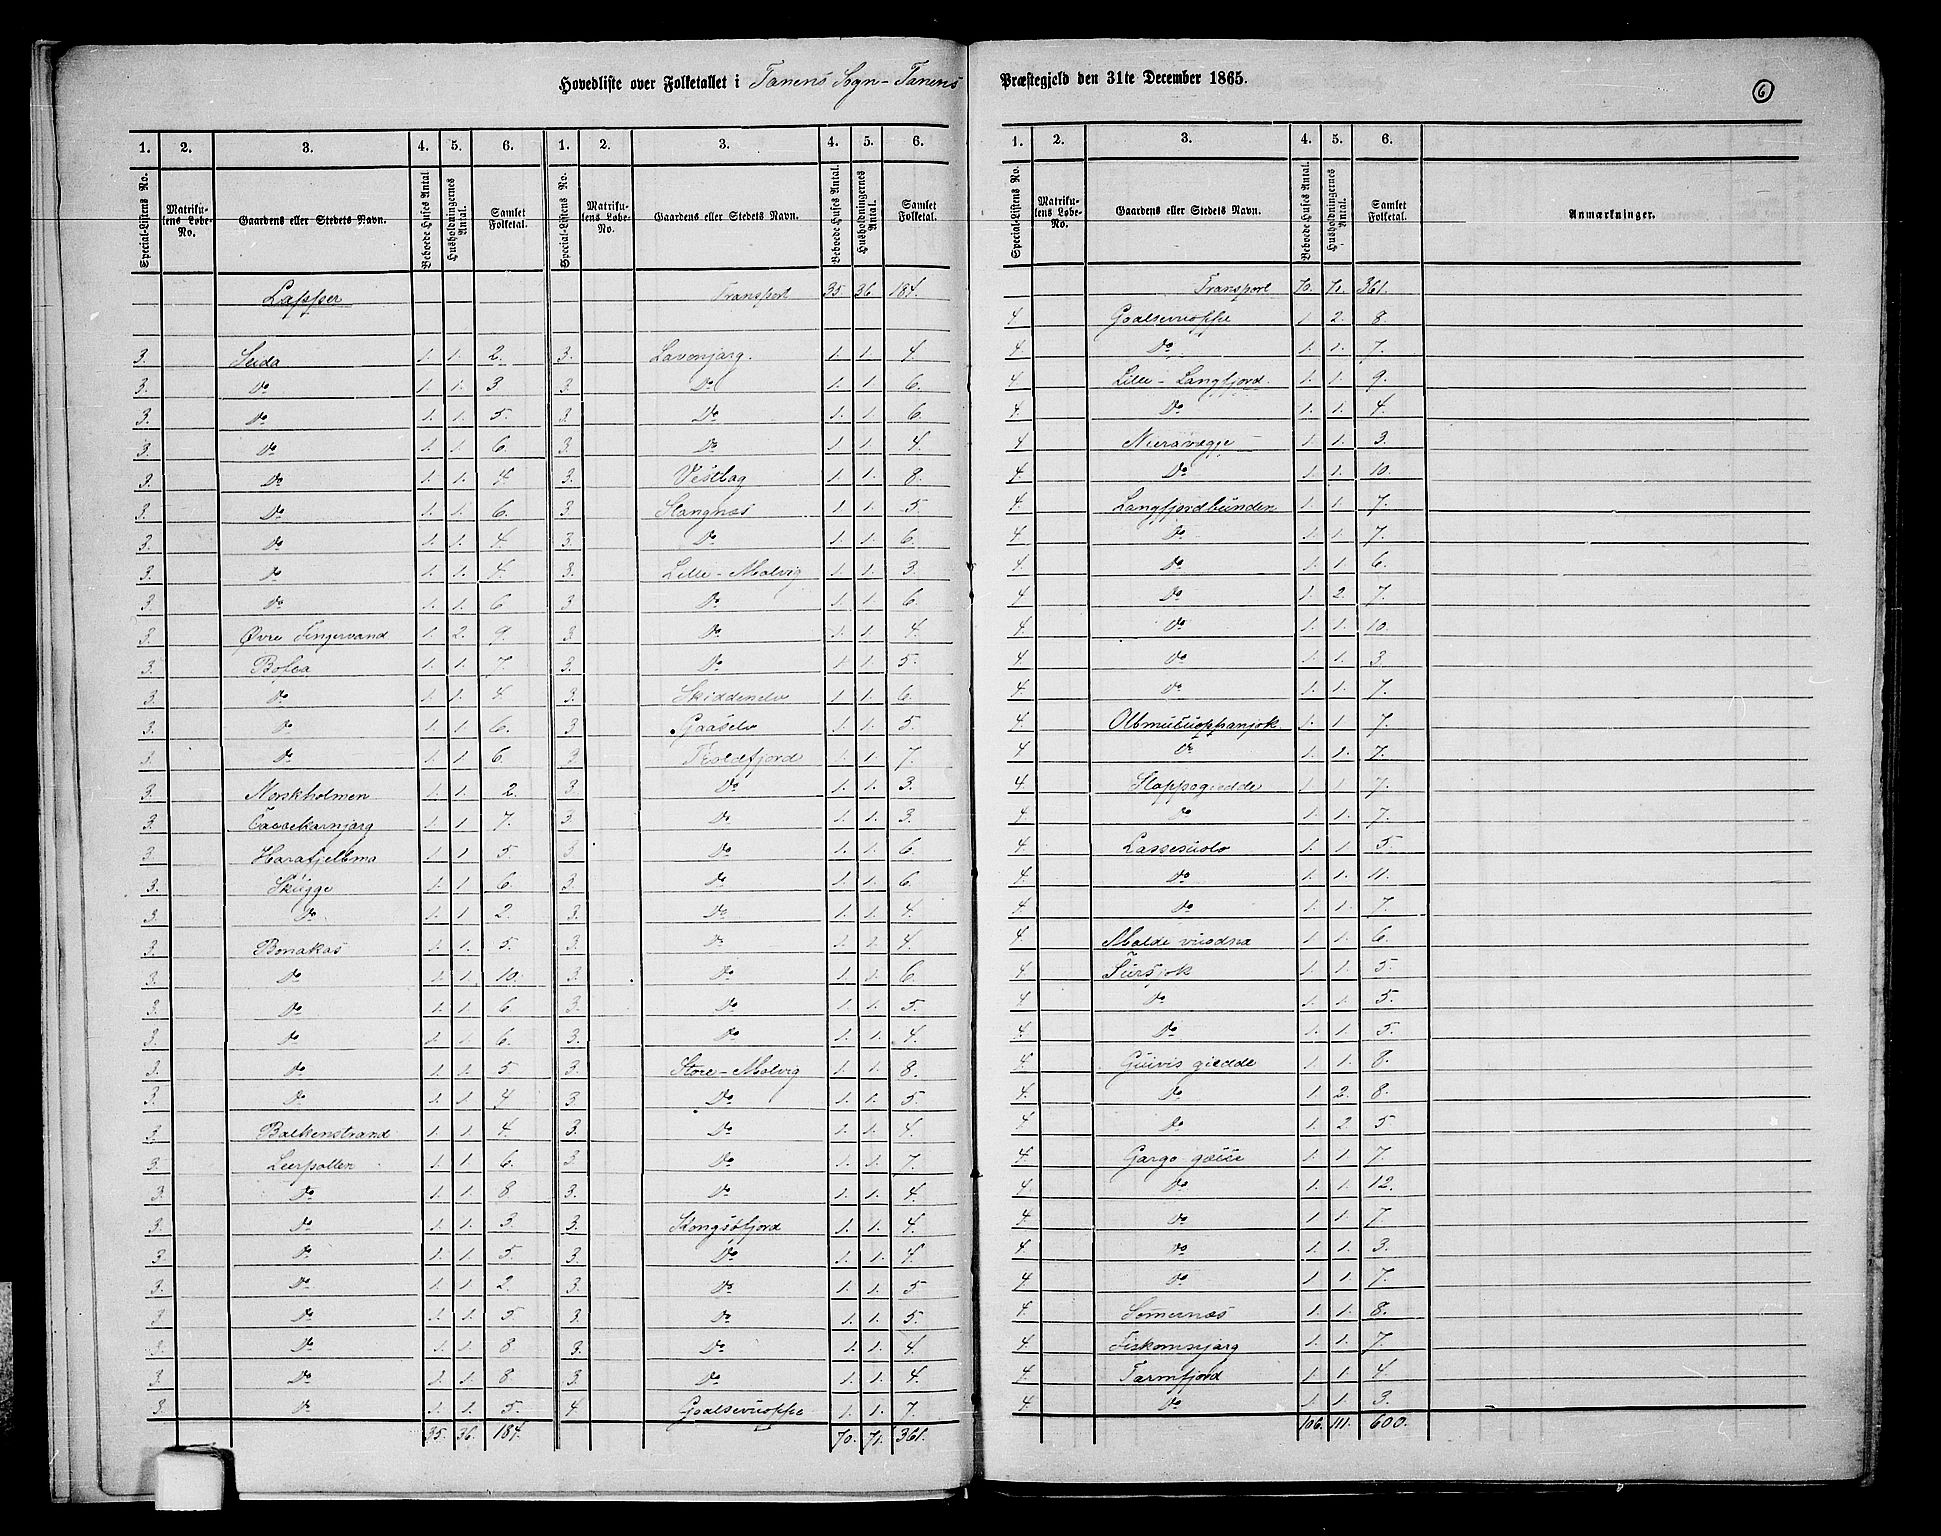 Hovedliste over Folketallet i Tanens Sogn - Tanens Præstegjeld den 31te December 1865.
6
1. 2. 3. 4. 5. 6. 1. 2. 3. 4. 5. 6.
Special-Listens No. Matrikulens Løbe-No. Gaardens eller Stedets Navn. Beboede Huses Antal. Husholdningernes Antal. Samlet Folketal. Special-Listens No. Matrikulens Løbe-No. Gaardens eller Stedets Navn. Beboede Huses Antal. Husholdningernes Antal. Samlet Folketal.
Lapper Transport 35. 36. 184.
3. Seida 1. 1. 2. 3. Lavonjarg. 1. 1. 4.
3. Do 1. 1. 3 3. Do 1. 1. 6.
3. Do 1. 1. 5. 3. Do 1. 1. 6.
3. Do 1. 1. 6. 3. Do 1. 1. 4.
3. Do 1. 1. 4 3. Vestbag 1. 1. 8.
3. Do 1. 1. 6. 3. Stangnæs 1. 1. 5
3. Do 1. 1. 4. 3. Do 1. 1. 6.
3. Do 1. 1. 4. 3. Lille-Molvig 1. 1. 3.
3. Do 1. 1. 6 3. Do 1. 1. 6
3. Øvre Fingervand 1. 2. 9. 3. Do 1. 1. 4
3. Bofca 1. 1. 7. 3. Do 1. 1. 5.
3. Do 1. 1. 4 3. Skiddenelv 1. 1. 6.
3. Do 1. 1 6. 3 Gaaselv 1. 1. 5.
3. Do 1. 1 6. 3 Troldfjord 1. 1. 7.
3. Norskholmen 1. 1. 2. 3. Do 1. 1. 3.
3. 1. 1 7. 3. Do 1. 1. 3.
3. Harafjelbma 1. 1 5 3 Do 1. 1. 6.
3. Skugge 1. 1 6. 3. Do 1. 1. 6
3. Do 1. 1 2. 3. Do 1. 1. 4.
3. Bonakas 1. 1. 5. 3. Do 1. 1. 4.
3. Do 1. 1. 10. 3. Do 1. 1. 6
3. Do 1. 1. 6 3. Do 1. 1. 5.
3. Do 1. 1. 6. 3. Do 1. 1. 4.
3. Do 1. 1. 5 3. Store-Molvig 1. 1. 8.
3. Do 1. 1. 4 3. Do 1. 1. 5
3. Balkenstrand 1. 1. 4. 3. Do 1. 1. 4
3. Leerpollen 1. 1 6. 3. Do 1. 1. 7.
3. Do 1. 1. 8 3. Do 1. 1. 4.
3. Do 1. 1. 3. 3. Kongsøfjord 1. 1. 4.
3. Do 1. 1. 5. 3. Do 1. 1. 4.
3. Do 1. 1 2. 3. Do 1. 1. 5
3. Do 1. 1. 5 3. Do 1. 1. 5
3. Do 1. 1. 8 3. Do 1. 1. 4
3. Do 1. 1. 8 3. Do 1. 1. 4.
3. Do 1. 1. 5. 4. Goalsevuoppe 1. 1. 7.
35. 36. 184. 70. 71. 361.
1. 2. 3. 4. 5. 6.
Special-Listens No. Matrikulens Løbe-No. Gaardens eller Stedets Navn. Beboede Huses Antal. Husholdningernes Antal. Samlet Folketal. Anmærkninger.
Transport 70. 71. 361.
4. Goalsevuoppe 1 2. 8.
4. Do 1. 1. 7.
4. Lille-Langfjord. 1. 1. 9.
4. Do 1. 1. 4.
4. Nieravægje 1. 1. 3.
4. Do 1. 1. 10.
4. Langfjordbunden 1. 1. 7.
4. Do 1. 1. 7.
4. Do 1. 1. 6.
4. Do 1. 2. 7.
4. Do 1. 1. 10.
4. Do 1. 1. 3.
4. Do 1. 1. 7.
4. 1. 1. 7.
4. Do 1. 1. 7.
4. Stappogiedde 1. 1. 7.
4. Do 1. 1. 7.
4. Lassesuolo 1. 1. 5.
4. Do 1. 1. 11.
4. Do 1. 1. 7.
4. Molde vuodna 1. 1. 6.
4. Sursjok 1. 1. 5.
4. Do 1. 1. 5.
4. Do 1. 1. 5.
4. Guivis giedde 1. 1. 8.
4. Do 1. 2. 8.
4. Do 1. 2. 5
4. 1. 1 7
4. Do 1. 1. 12.
4. Do 1. 1. 7
4. Do 1. 1. 3.
4. Do 1. 1. 7.
4. Somernæs 1. 1. 8.
4. Fiskomnjarg 1. 1. 7.
4. Tarmfjord 1. 1. 4
4. Do 1. 1. 3.
106. 111. 600.